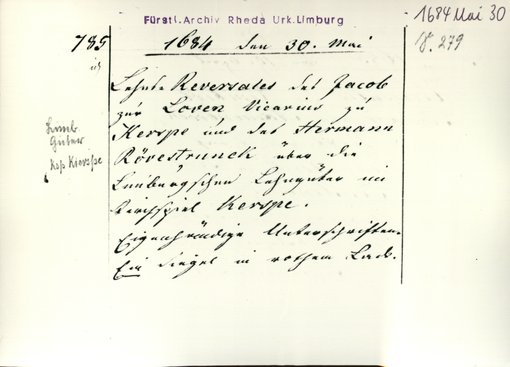 Fürstl. Archiv Rheda Urk. Limburg
1684 Mai 30
V. 279
785
1684 den 30. Mai
Lehns Reversales des Jacob
zur Loven Vicarius zu
Kerspe und des Hermann
Rövestrunck über die
Limburgschen Lehngüter im
Kirchspiel Kerspe.
Eigenhändige Unterschriften.
Ein Siegel in rothem Lack.
Limb.
Güter
Ksp. Kierspe